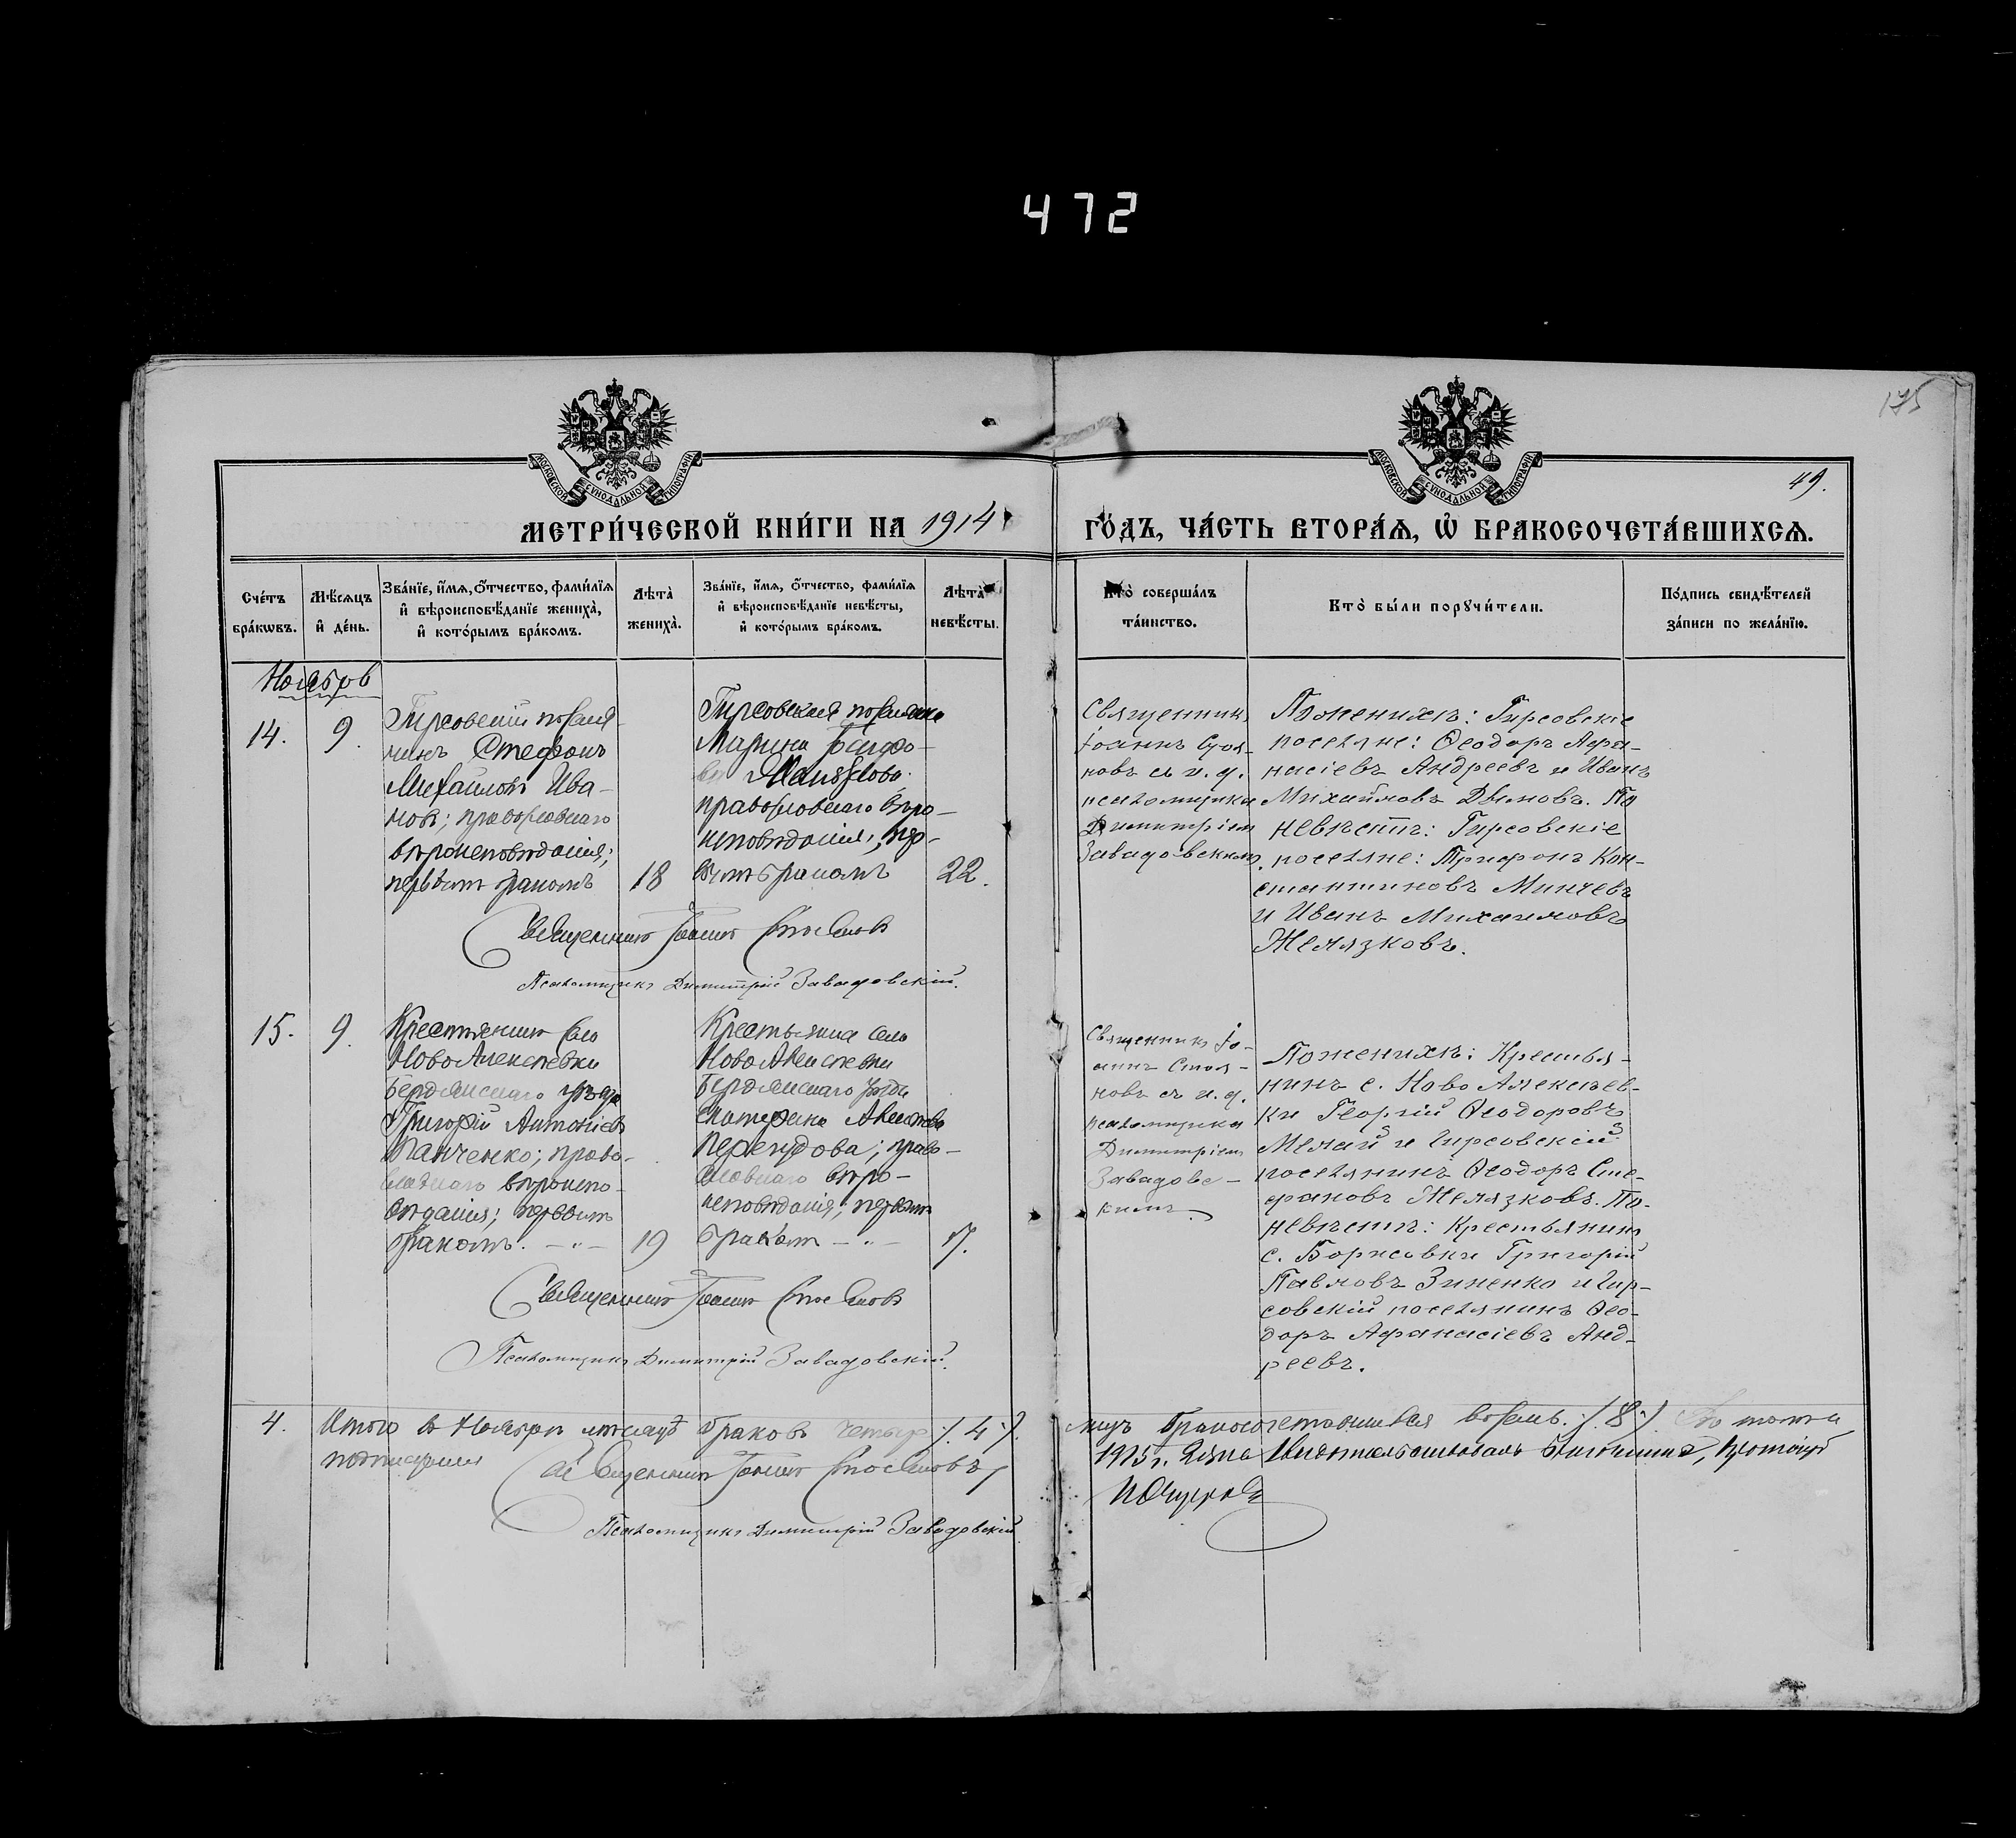 472
175
49.
МОСКОВСКОЙ СѴНОДАЛЬНОЙ ТИПОГРАФІИ
МОСКОВСКОЙ СѴНОДАЛЬНОЙ ТИПОГРАФІИ
МЕТРИ́ЧЕСКОЙ КНИ́ГИ НА 1914
ГО́ДЪ, ЧА́СТЬ ВТОРА́Ѧ, Ѡ҆ БРАКОСОЧЕТА́ВШИХСѦ.
Сче́тъ
бра́кѡвъ.
Мѣ́сѧцъ
и҆ де́нь.
Зва́нїе, и҆́мѧ, ѻ҆́тчество, фами́лїѧ
и҆ вѣроисповѣ́данїе жениха̀,
и҆ кото́рымъ бра́комъ.
Лѣта̀
жениха̀.
Зва́нїе, и҆́мѧ, ѻ҆́тчество, фами́лїѧ
и҆ вѣроисповѣ́данїе невѣ́сты,
и҆ кото́рымъ бра́комъ.
Лѣта̀
невѣ́сты.
Кто̀ соверша́лъ
та́инство.
Кто̀ бы́ли порꙋчи́тели.
По́дпись свидѣ́телей
за́писи по жела́нїю.
Ноябрь
14.
9.
Гирсовскій поселя-
нинъ Стефанъ
Михайловъ Ива-
новъ; православнаго
вѣроисповѣданія;
первымъ бракомъ
18
Гирсовская поселянка
Марина
православнаго вѣро-
исповѣданія; пер-
вымъ бракомъ
22.
Священникъ
Іоаннъ Стоя-
новъ съ и. д.
псаломщика
Димитріемъ
Завадовскимъ.
По женихѣ: Гирсовскіе
поселяне: Ѳеодоръ Афа-
насіевъ Андреевъ и Иванъ
Михайловъ Дымовъ. По
невѣстѣ: Гирсовскіе
поселяне: Трифонъ Кон-
стантиновъ Минчевъ
и Иванъ Михаиловъ
Желязковъ.
Священникъ Іоаннъ Стояновъ
Псаломщикъ Димитрій Завадовскій.
15.
9.
Крестьянинъ села
Ново Алексѣевки
Бердянскаго уѣзда
Григорій Антоніевъ
Панченко; право-
славнаго вѣроиспо-
вѣданія; первымъ
бракомъ. — „ —
19
Крестьянка села
Ново Алексѣевки
Бердянскаго уѣзда
Екатерина
право-
славнаго вѣро-
исповѣданія; первымъ
бракомъ — „ —
Священникъ Іо-
аннъ Стоя-
новъ съ и. д.
псаломщика
Димитріемъ
Завадовс-
кимъ.
По женихѣ: Крестья-
нинъ с. Ново Алексѣев-
ки Георгій Ѳеодоровъ
Мелай и Гирсовскій
поселянинъ Ѳеодоръ Сте-
фановъ Желязковъ. По
невѣстѣ: Крестьянинъ
с. Борисовки Григорій
Павловъ Зиненко и Гир-
совскій поселянинъ Ѳео-
доръ Афанасіевъ Анд-
реевъ.
Священникъ Іоаннъ Стояновъ
Псаломщикъ Димитрій Завадовскій.
4.
Итого въ Ноябрѣ мѣсяцѣ браковъ четыре /.4./
лицъ бракосочетавшихся восемь. /.8./
1915 г.
Священникъ Іоаннъ Стояновъ
Псаломщикъ Димитрій Завадовскій